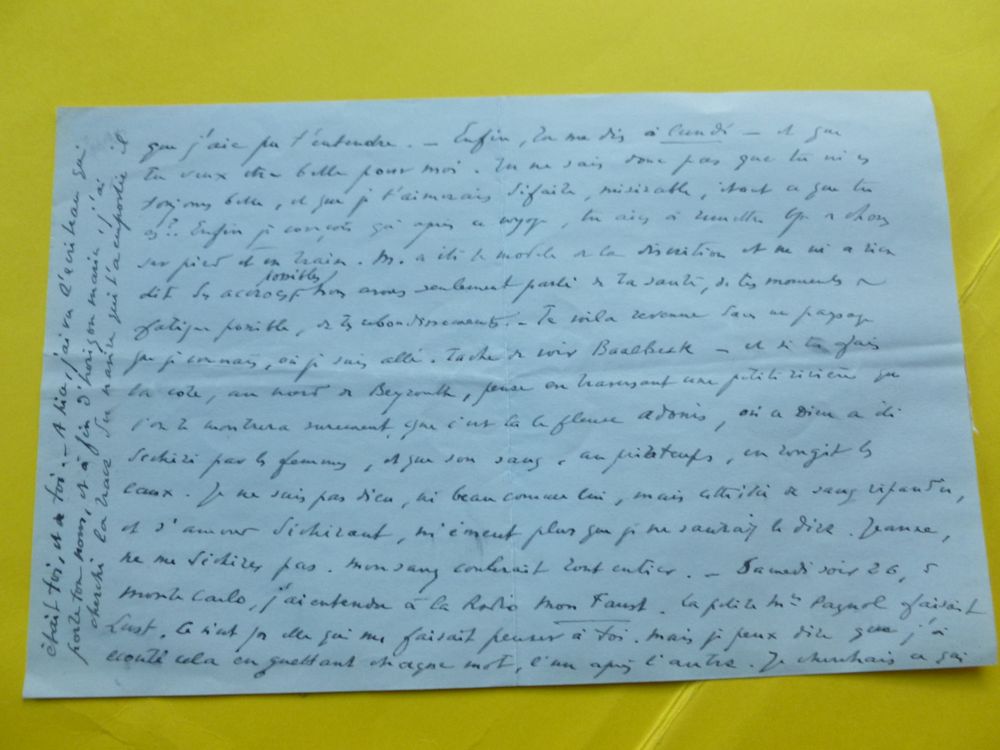 que j'aie pu t'entendre. – Enfin, tu me dis à lundi – et que
tu veux être belle pour moi. Tu ne sais donc pas que tu m'es
toujours belle, et que je t'aimerais défaite, misérable, tout ce que tu
Enfin je conçois qu'après ce voyage, tu aies à remettre choses
sur pied et en train. M. a été le modèle de la discrétion et ne m'a rien
dit des accrocs possibles nous avons seulement parlé de ta santé, de tes moments de
fatigue possible, de tes rebondissements. – Te voilà revenue dans un paysage
que je connais, où je suis allé. Tache de voir Baalbeck – et si tu fais
la côte, au nord de Beyrouth, pense en traversant une petite rivière que
l'on te montrera surement, que c'est là le fleuve Adonis, où ce Dieu a été
déchiré par les femmes, et que son sang, au printemps, en rougit les
eaux. Je ne suis pas dieu, ni beau comme lui, mais cette idée de sang répandu,
et d'amour déchirant, m'émeut plus que je ne saurais le dire. Jeanne,
ne me déchires pas. Mon sang coulerait tout entier. – Samedi soir 26, à
Monte Carlo, j'ai entendu à la Radio Mon Faust. La petite Me Pagnol faisait
Lust. Ce n'est pas elle qui me faisait penser à toi. Mais je peux dire que j'ai
écouté cela en guettant chaque mot, l'un après l'autre. Je cherchais ce qui
était toi, et de toi. – A Nice, j'ai vu l'écriteau qui
porte ton nom, et à fin d'horizon marin, j'ai
cherché la trace du navire qui t'a emportée.